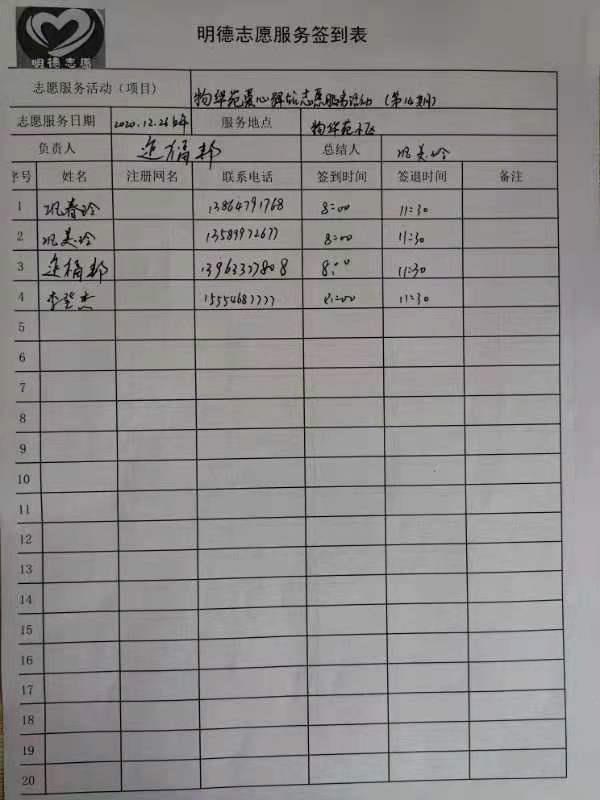 明德志愿
明德志愿服务签到表
志愿服务活动（项目） 物华苑爱心驿站志愿服务活动（第16期）
志愿服务日期 2020.12.26 服务地点 物华苑小区
负责人 总结人 巩美玲
序号 姓名 注册网名 联系电话 签到时间 签退时间 备注
1 巩春玲 13864791768 8:00 11:30
2 巩美玲 13589972677 8:00 11:30
3 13963377808 8:00 11:30
4 李登杰 15554687777 8:00 11:30
5
6
7
8
9
10
11
12
13
14
15
16
17
18
19
20